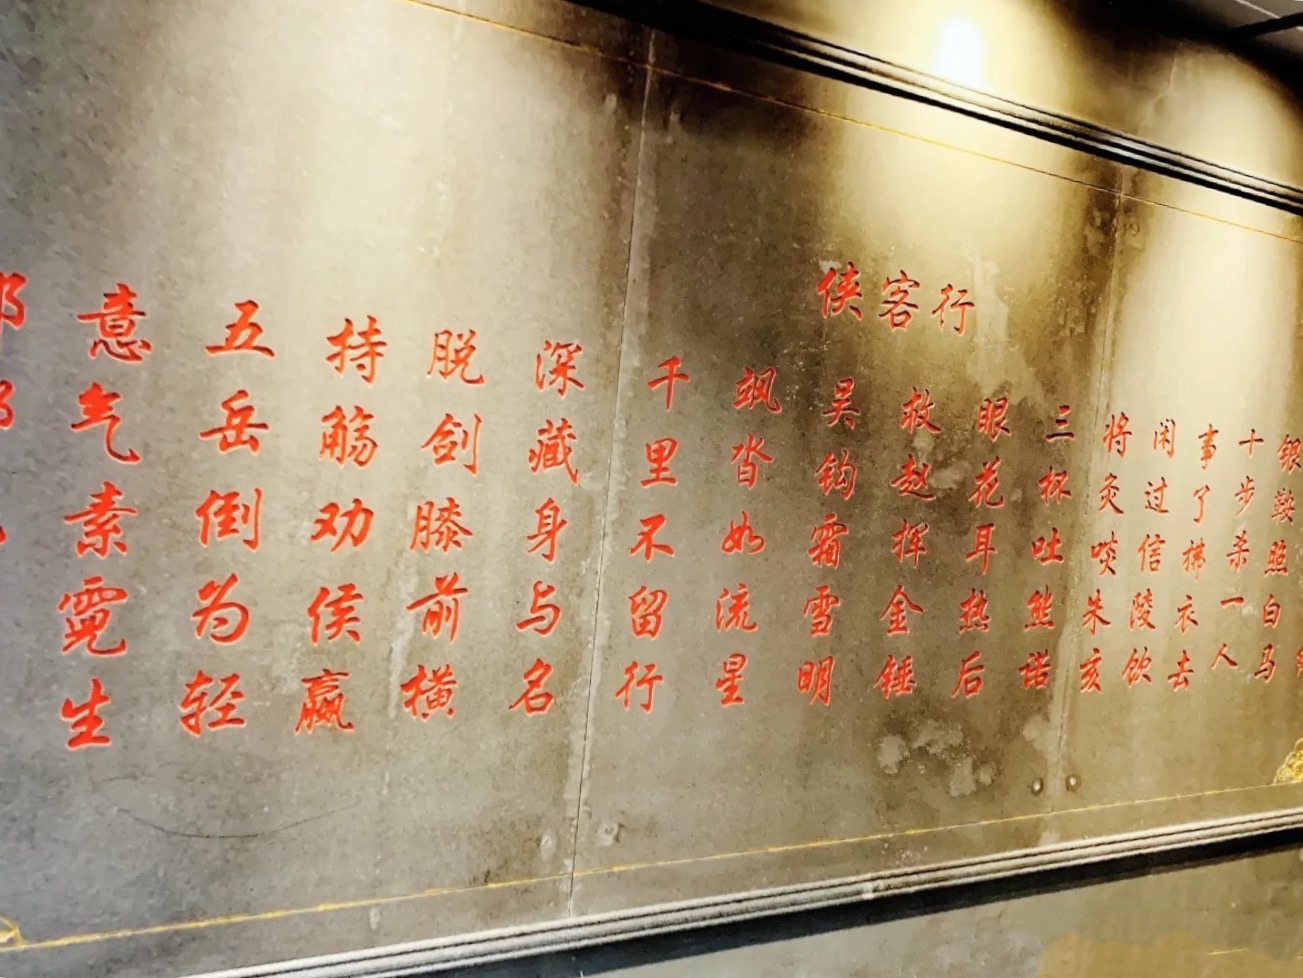 侠客行
银鞍照白马
十步杀一人
事了拂衣去
闲过信陵饮
将炙啖朱亥
三杯吐然诺
眼花耳热后
救赵挥金锤
吴钩霜雪明
飒沓如流星
千里不留行
深藏身与名
脱剑膝前横
持觞劝侯赢
五岳倒为轻
意气素霓生